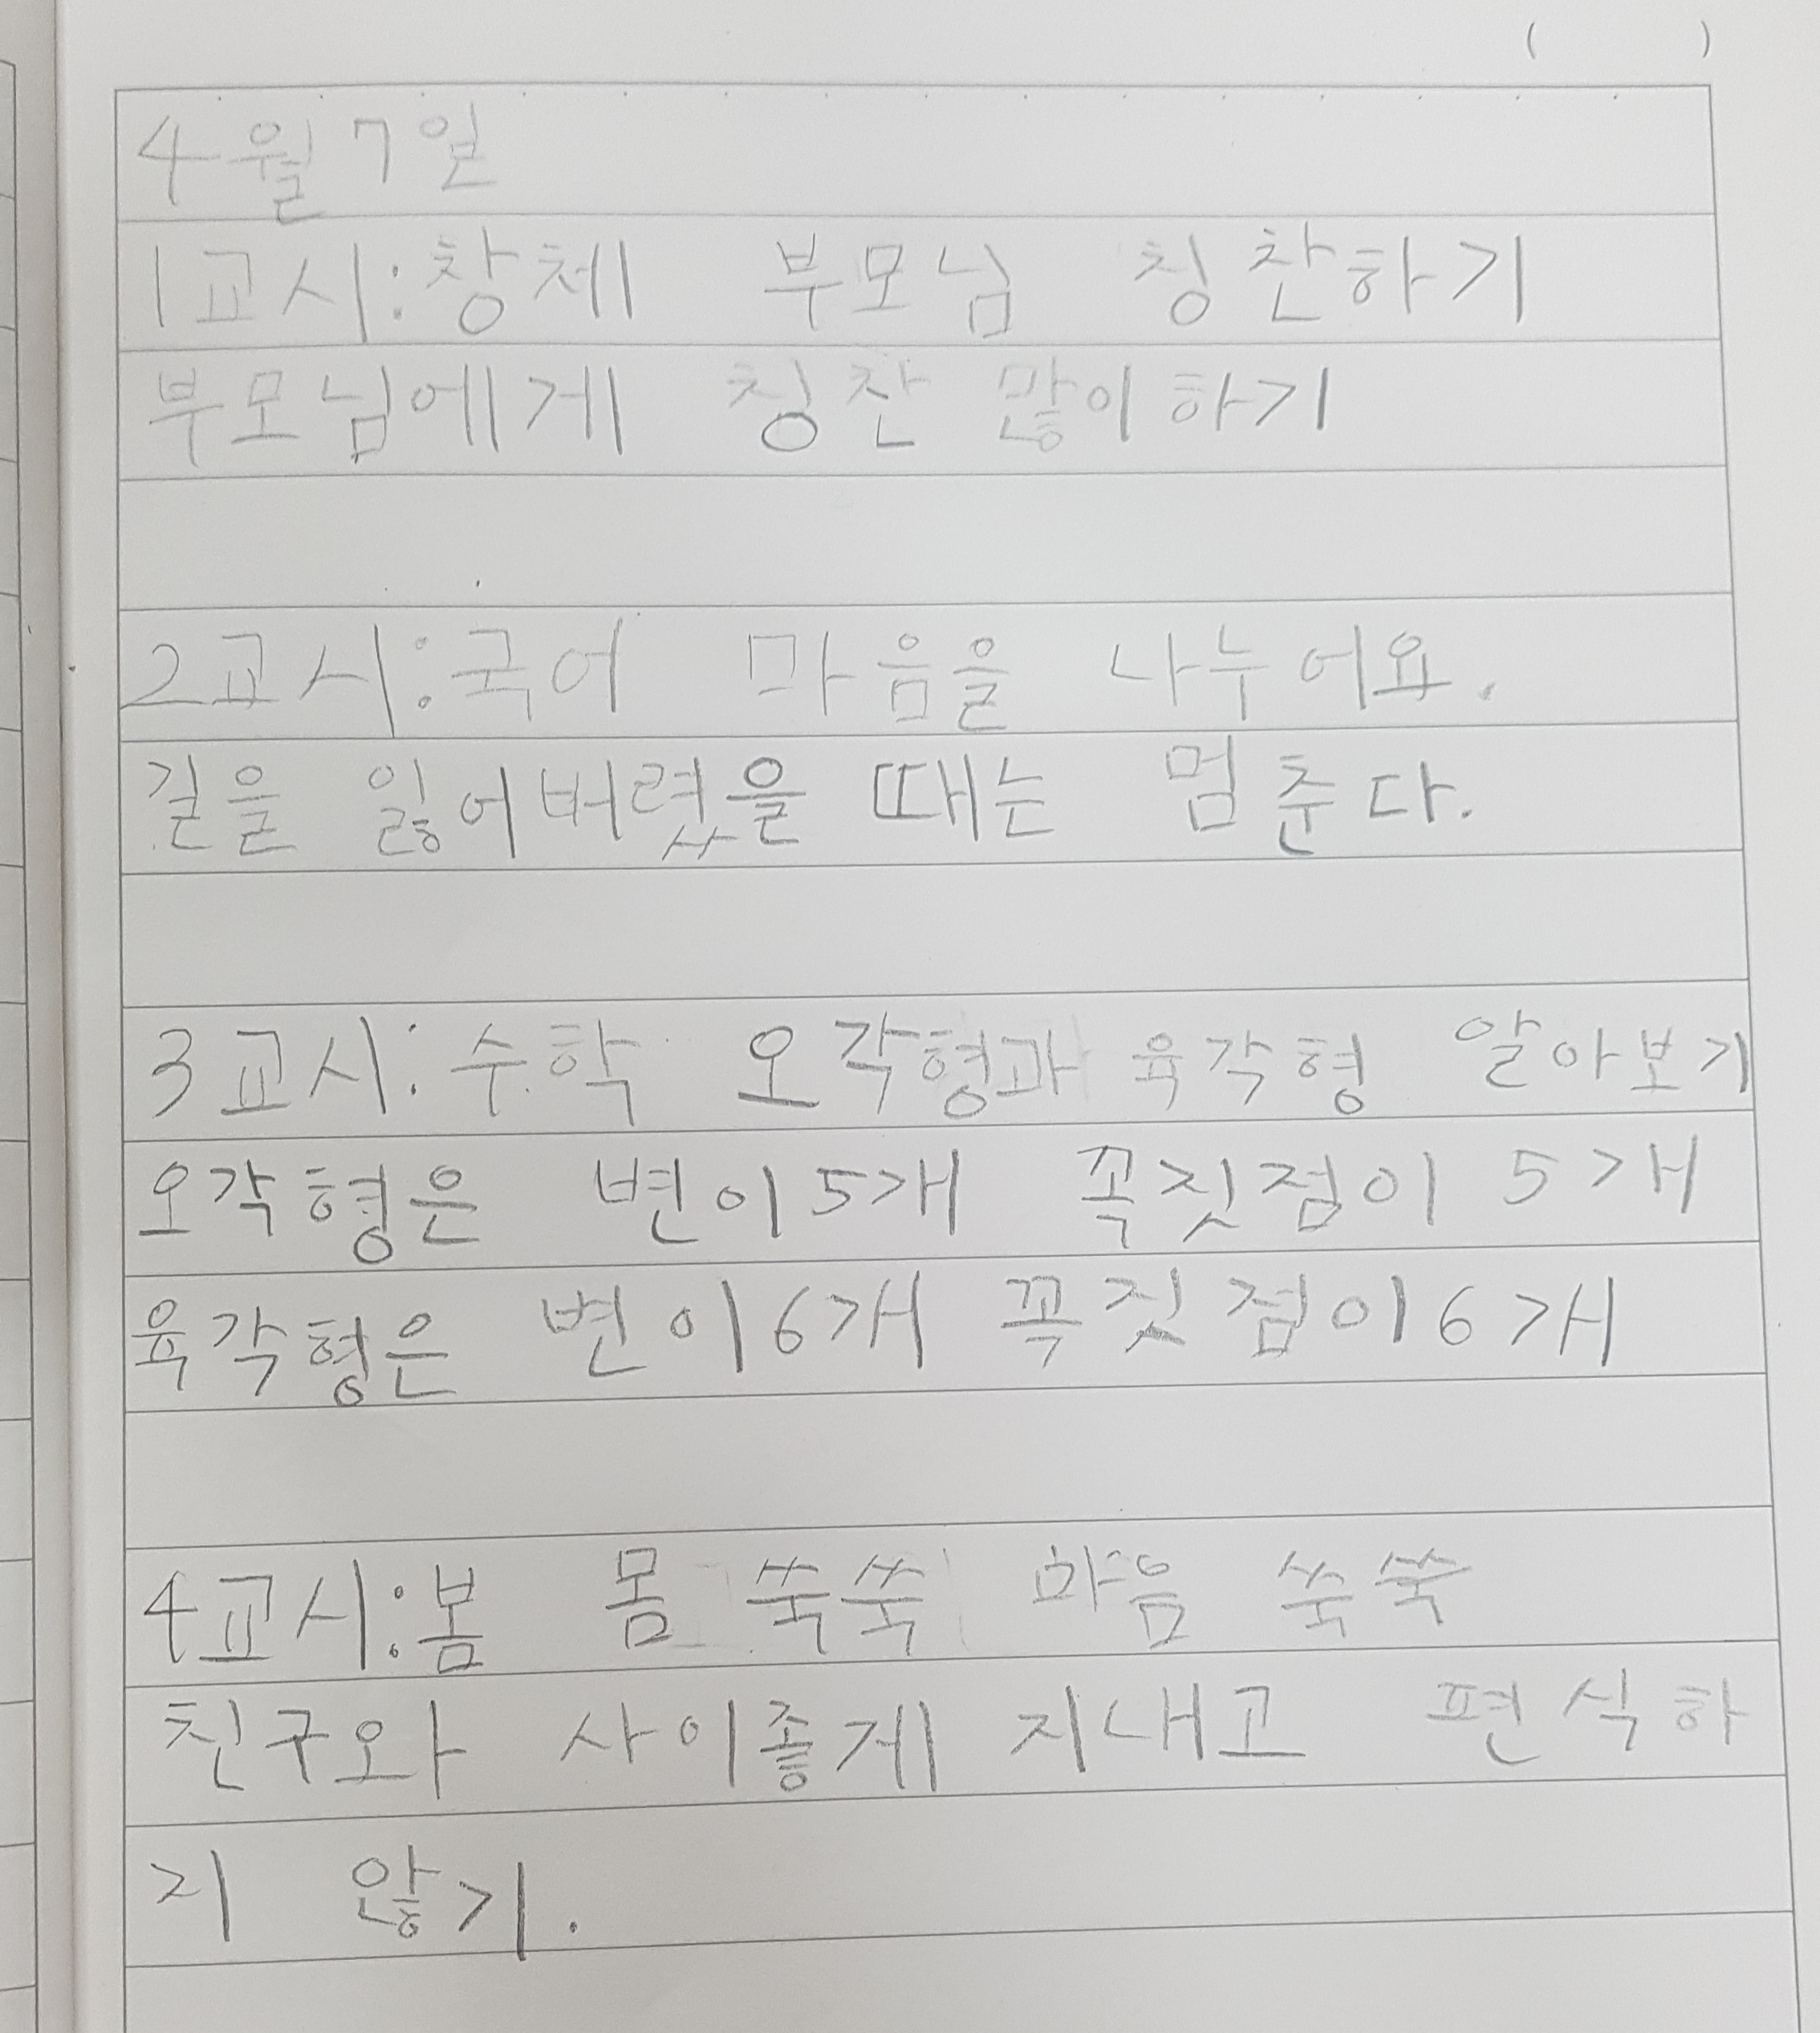 (        )
4월 7일
1교시:창체 부모님 칭찬하기
부모님에게 칭찬 많이 하기
2교시:국어 마음을 나누어요.
길을 잃어버렸을 때는 멈춘다.
3교시:수학 오각형과 육각형 알아보기
오각형은 변이 5개 꼭짓점이 5개
육각형은 변이 6개 꼭짓점이 6개
4교시:봄 몸 쑥쑥 마음 쑥쑥
친구와 사이좋게 지내고 편식하
지 않기.